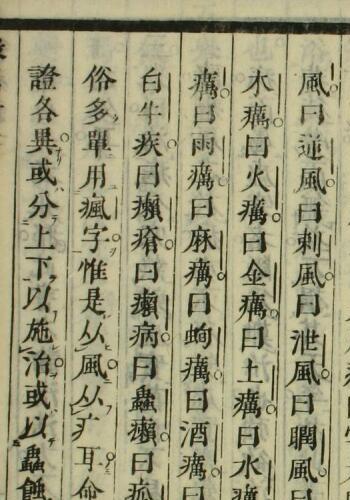 風曰逆風曰刺風曰泄風曰𨶑風
木癘曰火癘曰金癘曰土癘曰水
癘曰雨癘曰麻癘曰蚼癘曰酒癘曰
白牛疾曰癩瘡曰癩病曰蠱癩曰
俗多單用瘋字惟是从風从疒耳命
證各異或分上下以施治或以蟲蝕